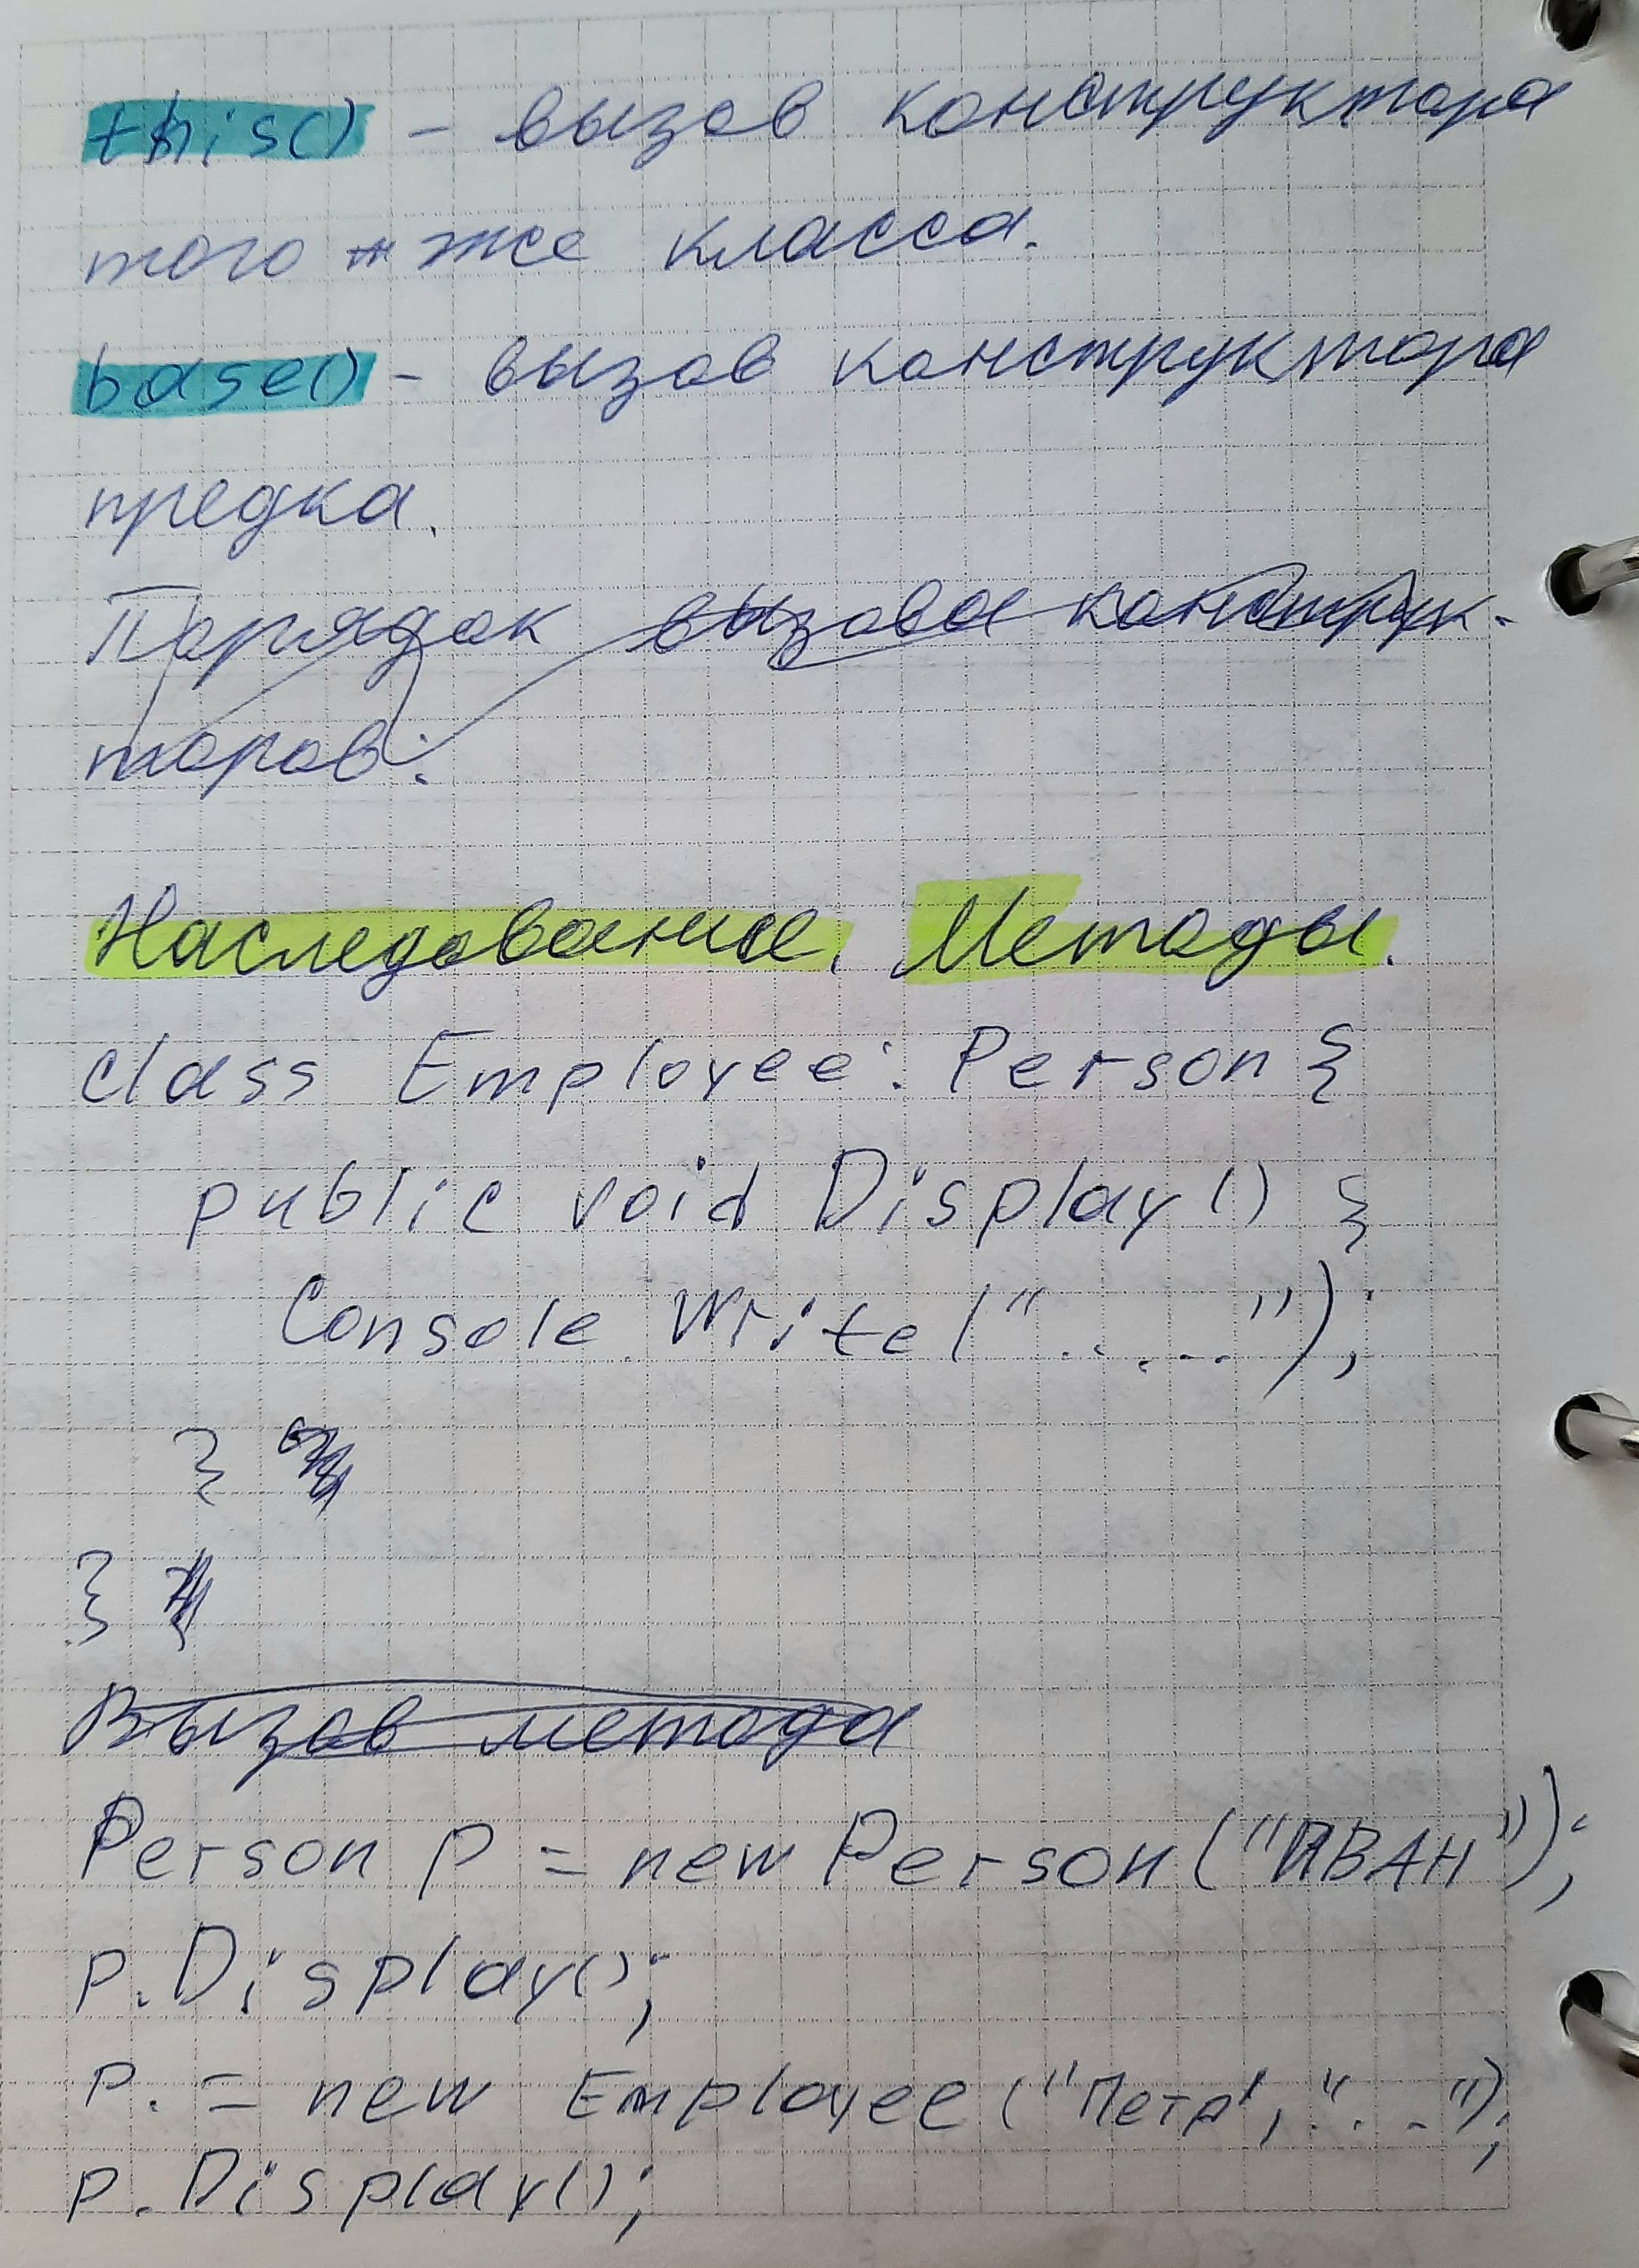 this() - вызов конструктора
того же класса.
base() - вызов конструктора
предка.
Порядок вызова конструк-
торов:
Наследование. Методы.
class Employee: Person {
public void Display() {
Console.Write("......");
}
}
Вызов метода
Person p = new Person("ИВАН");
p.Display();
p. = new Employee("Петр", "...");
p.Display();